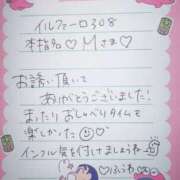 イルファーロ308
本指名♡Mさま♡
お誘い頂いて
ありがとうございました!
まったりおしゃべりタイムも
楽しかった
インフル気を付けましょうねー
♡ふうわ♡